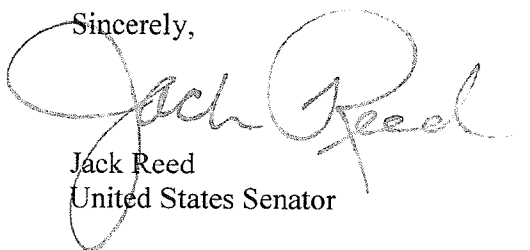 Sincerely,
Jack Reed
Jack Reed
United States Senator